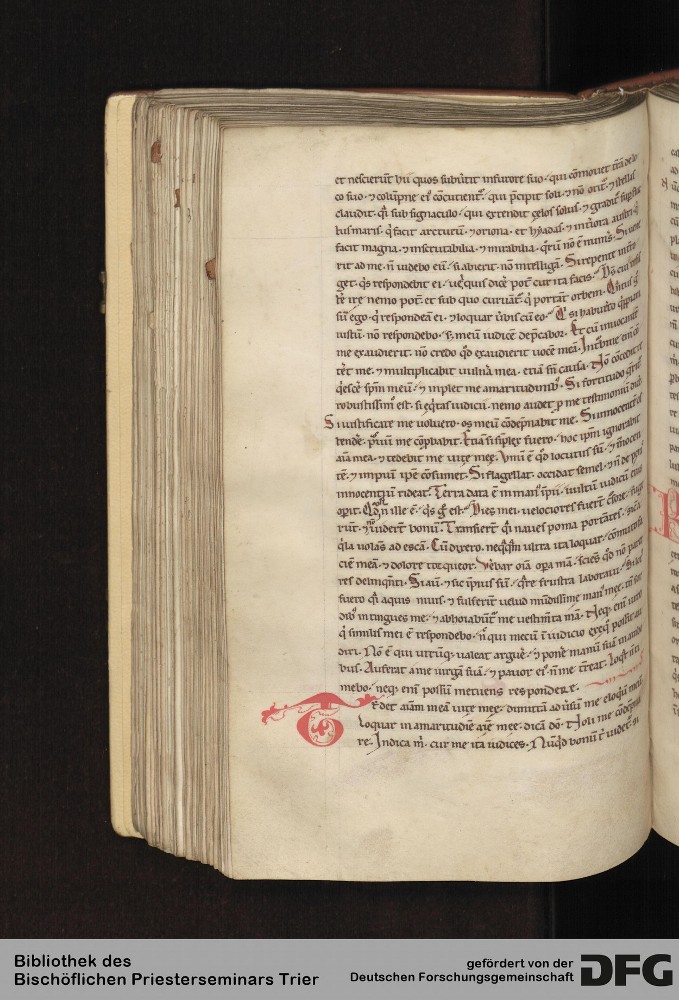 et nescierūt hii quos subūtit infurore suo · qui cōmovet trā de lo
co suo · ⁊ colūpne eiꝰ cōcutientᷣ · qui p̄cipit soli · ⁊ nō oritᷣ · ⁊ stellas
claudit · q̄i sub signaculo · qui extendit celos solus · ⁊ graditᷣ sup fluc
tus maris · q̄ facit arcturū · ⁊ oriona · et hyadas · ⁊ int̄iora austri · q̄
facit magna · ⁊ inscrutabilia · ⁊ mirabilia · q̄rū nō ē numꝰ · Si vene
rit ad me · n̄ videbo eū · si abierit · nō intelligā · Si repente int̄ro
get · q̄s respondebit ei · vel quis dicē pot̄ cur ita facis · Dꝰ cui resis
te ire nemo pot̄ · et sub quo curuātᷣ q̄ portāt orbem · Q̄ntus gͦ
sū ego · q̄ respondeā ei · ⁊ loquar ūbis cū eo ·
iustū · nō respondebo · s; meū iudicē dep̄cabor · Et cū inuocantē
me exaudierit · nō credo qd̄ exaudierit uocē meā · In turbine eni cō
t̄et me · ⁊ multiplicabit uuln̄a mea · etiā sn̄ causa · Nō concedit re
q̄escē spm̄ meū · ⁊ inplet me amaritudinibꝰ · Si fortitudo q̄ritᷣ
robustissimꝰ est · si eq̄tas iudicii · nemo audet ꝓ me testimoniū dicē
Si iustificare me voluero · os meū cōdēpnabit me · Si innocentē os
tendē · prauū me cōprobabit · Etiā si siplex fuero · hoc ipm̄ ignorabit
aīa mea · ⁊ tedebit me uite meę · Vnū ē qd̄ locutus sū · ⁊ inocen
tē · ⁊ impiū ipē cōsumet · Si flagellat · occidat semel · ⁊ n̄ de penis
innocentiū rideat · Terra data ē in manꝰ ipii · vultū iudicū eius
operit · Qd̄ si n̄ ille ē · q̄s gͦ est · Dies mei uelociores fuerūt c̄sore · fuge
rūt · ⁊ n̄ uiderūt bonū · Transierūt q̄i naues poma portātes · sic a
q̄la volās ad escā · Cū dixero · neq̄q̄m ultra ita loquar · cōmuto fa
ciē meā · ⁊ dolore torqueor · Verebar oīa opa mā · sciēs qd̄ nō parce
res delinq̄nti · Si aū · ⁊ sic ip̄ius sū · q̄re frustra laboraui · Si lotꝰ
fuero q̄i aquis niuis · ⁊ fulserūt uelud mūdissime manꝰ mee · tn̄ sor
dibꝰ intingues me · ⁊ abhoīabūtᷣ me uestimta mā · Neq; eni uiro
q̄ similis mei ē respondebo · n̄ qui mecū ī iudicio exeq̄ possit au
diri · Nō ē qui utrūq; ualeat arguē · ⁊ ponē manū suā in ambo
bus · Auferat a me uirgā suā · ⁊ pauor eiꝰ n̄ me t̄reat · Loq̄r ⁊ n̄ ti
mebo · neq; eni possū metuens respondere ·
Tedet aīam meā uite mee · dimittā aduersū me eloquiū meū
loquar in amaritudīe aīe mee · dicā dō · Noli me cōdēpna
re · Indica m̄ · cur me ita iudices · Nūqd̄ bonū t̄ uidetᷣ · si
Bibliothek des
Bischöflichen Priesterseminars Trier
gefördert von der
Deutschen Forschungsgemeinschaft
DFG